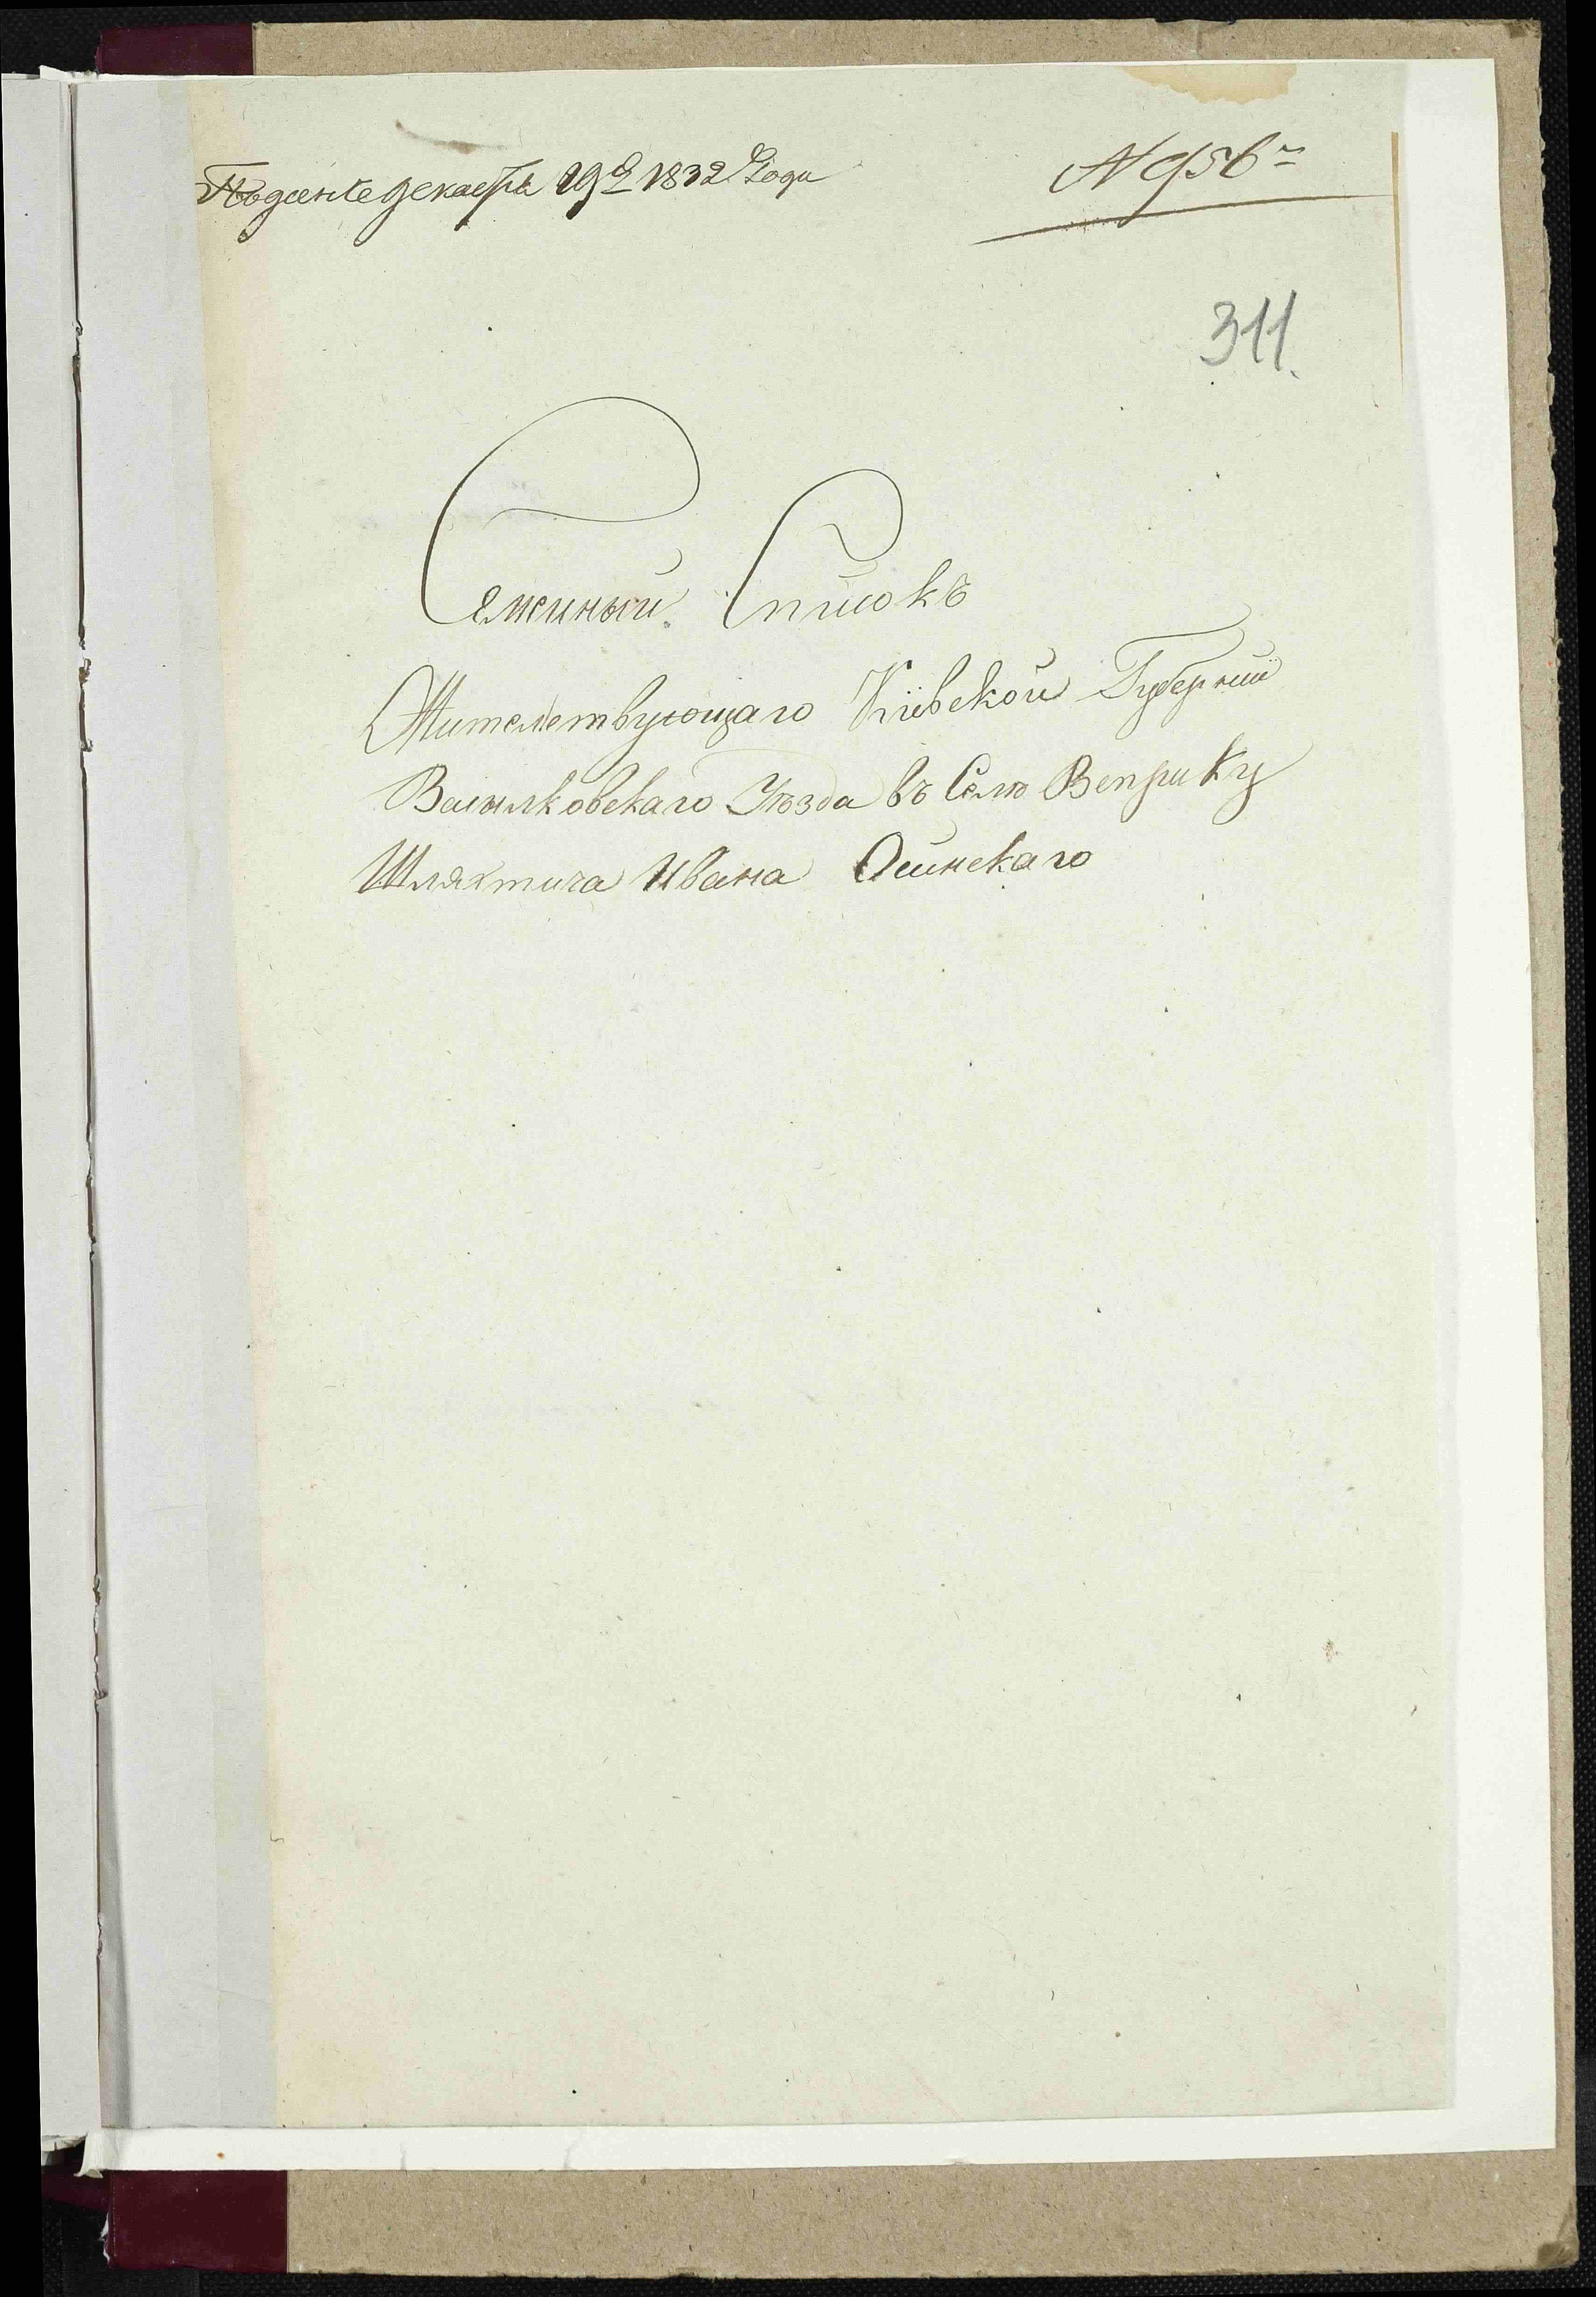 Подан декабря 19го 1832 Года
N 956
311.
Семиный Списокъ
Жителствующаго Кіивской Губерніи
Василковскаго Уезда въ Селе Веприку
Шляхтича Ивана Осинскаго